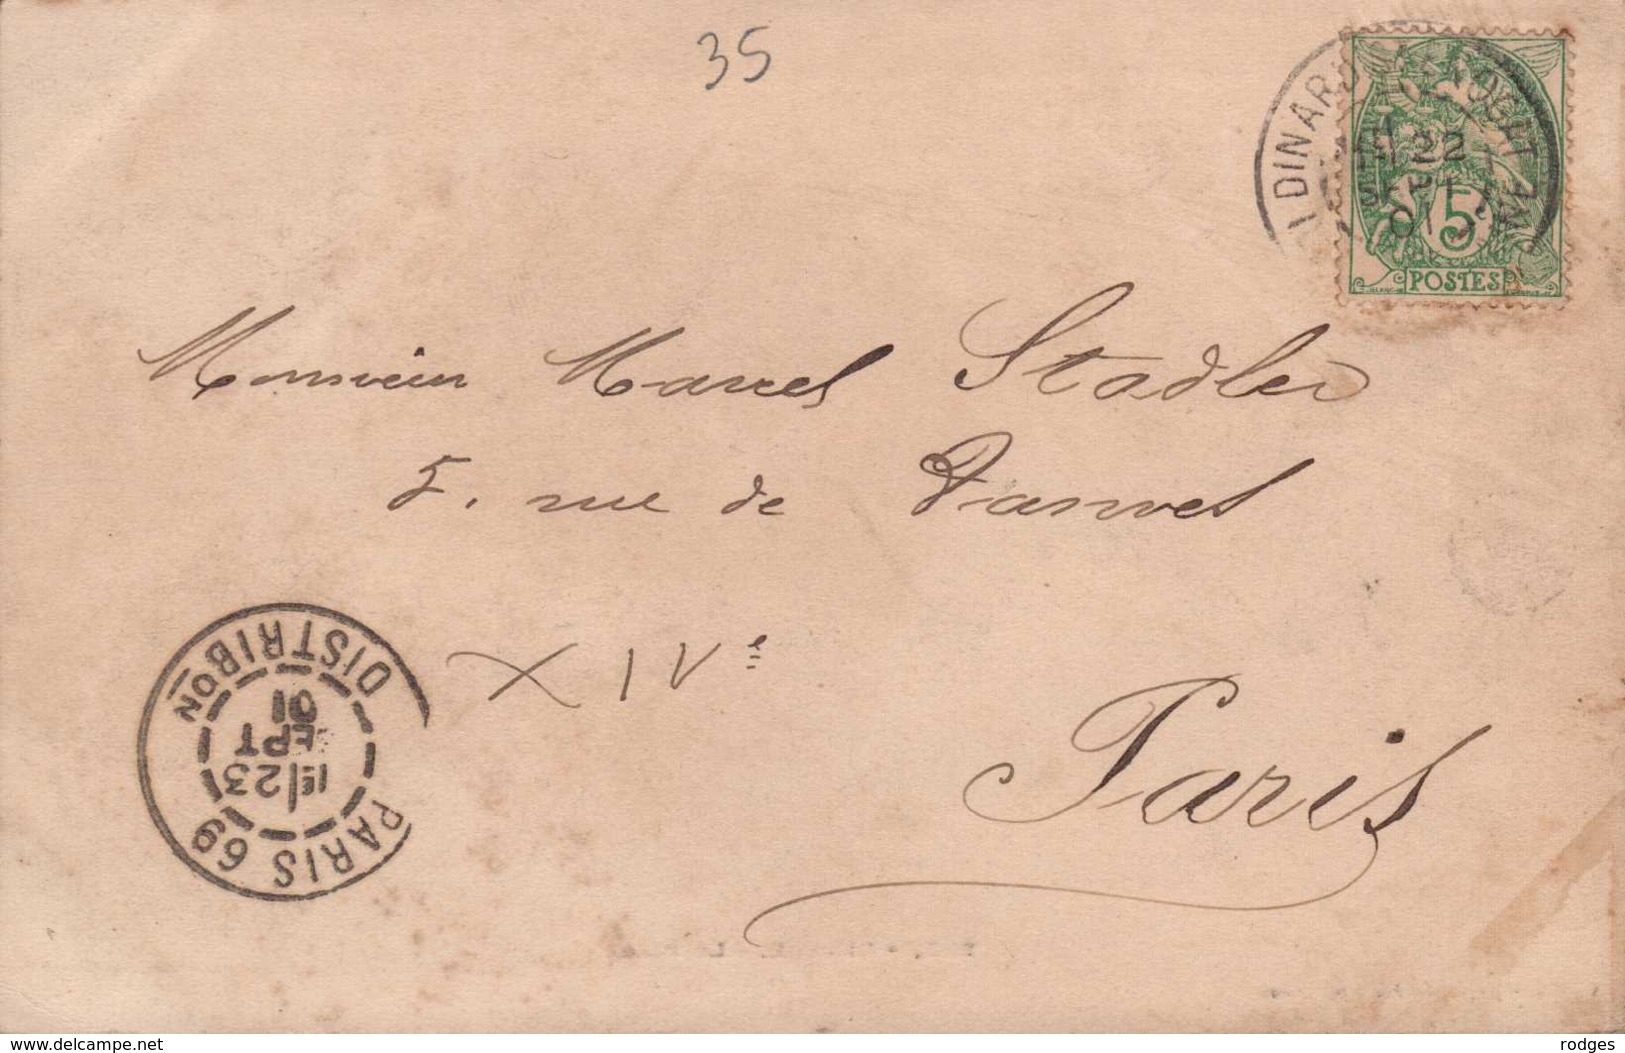 35
DINARD ST ENOGAT
22
SEPT
01
5
POSTES
Monsieur Marcel Stadler
5. rue de
XIVe
Paris
PARIS 69 DISTRIBON
23
SEPT
01
www.delcampe.net
rodges